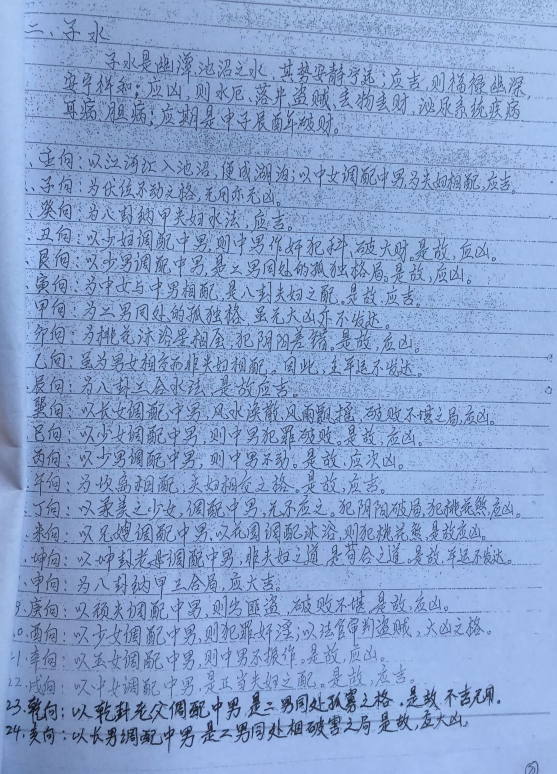 二、子水
子水是幽潭池沼之水、其势安静宁远；应吉，则福禄幽深，
安宁祥和；应凶，则水厄、落井、盗贼、丢物丢财、泌尿系统疾病，
耳病、胆病；应期是申子辰酉年破财。
、壬向：以江河汇入池沼，便成湖泊；以中女调配中男，为夫妇相配，应吉。
、子向：为伏位不动之格，无用亦无凶。
、癸向：为八卦纳甲夫妇水法，应吉。
、丑向：以少妇调配中男，则中男作奸犯科、破大财。是故，应凶。
、艮向：以少男调配中男，是二男同处的孤独格局。是故，应凶。
、寅向：为中女与中男相配，是八卦夫妇之配。是故，应吉。
、甲向：为二男同处的孤独格，虽无大凶亦不发达。
、卯向：为桃花沐浴星相歪，犯阴阳差错。是故，应凶。
、乙向：虽为男女相交而非夫妇相配。因此，主平运不发达。
、辰向：为八卦三合水法，是故应吉。
、巽向：以长女调配中男，风水涣散，风雨飘摇，破败不堪之局，应凶。
、巳向：以少女调配中男，则中男犯罪破败。是故，应凶。
、丙向：以少男调配中男，则中男不动。是故，应次凶。
、午向：为坎离相配，夫妇相交之格。是故，应吉。
、丁向：以柔美之少女，调配中男，无不应之。犯阴阳破局，犯桃花煞，应凶。
、未向：以兄嫂调配中男，以花园调配沐浴，则犯桃花煞，是故应凶。
、坤向：以坤卦老母调配中男，非夫妇之道，是苟合之道。是故，平运不发达。
、申向：为八卦纳甲三合局，应大吉。
9.庚向：以预夫调配中男，则出匪盗，破败不堪，是故，应凶。
0.酉向：以少女调配中男，则犯罪奸淫；以法官审判盗贼，大凶之格。
21.辛向：以玉女调配中男，则中男不振作。是故，应凶。
22.戌向：以中女调配中男，是正当夫妇之配。是故，应吉。
23.乾向：以乾卦老父调配中男，是二男同处孤寡之格，是故，不吉无用。
24.亥向：以长男调配中男，是二男同处相破害之局，是故，应大凶。